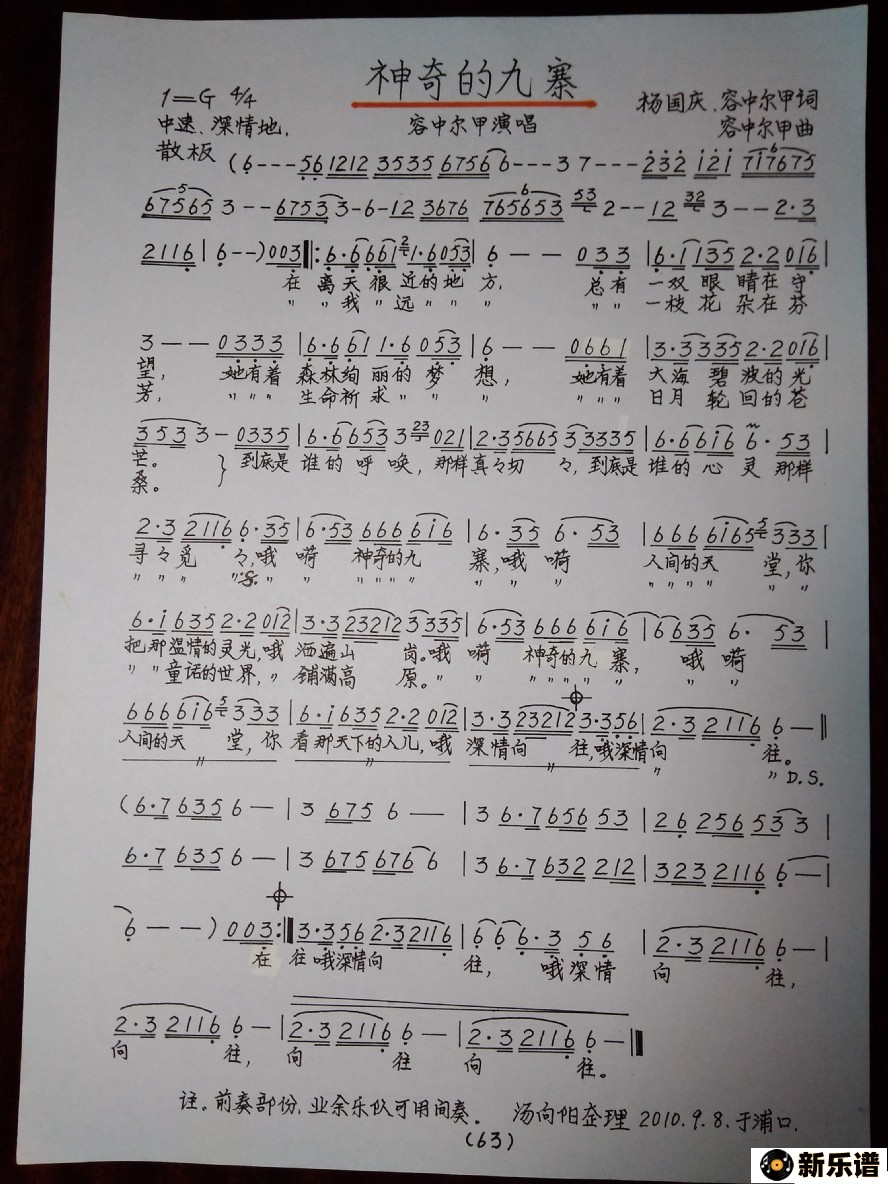 神奇的九寨
1=G 4/4
杨国庆、容中尔甲词
中速、深情地,
容中尔甲演唱
容中尔甲曲
散板
(6---56 1212 3535 6756 6---3 7---232 121 717675
67565 3--6753 3-6-12 3676 765653 53 2--12 32 3--2·3
2116|6--)003‖:6·6 661 2 1·6 053|6--033|6·1 135 2·2 016|
在 离天很近的地方, 总有 一双眼睛在守
〃〃我〃远〃〃〃 〃〃 一枝花朵在芬
3--0333|6·661 1·6 053|6--0661|3·3 335 2·2 016|
望, 她有着 森林绚丽的梦想, 她有着 大海碧波的光
芳, 〃〃〃 生命祈求〃〃〃 〃〃〃 日月轮回的苍
3533-0335|6·6 653 3 23 021|2·35665 3 3335|6·6 616 6·53|
芒。 } 到底是 谁的呼唤,那样真々切々,到底是 谁的心灵那样
桑。
2·3 2116 6·35|6·53 666 616|6·35 6·53|666 6165 5 333|
寻々觅々,哦 嗬 神奇的九 寨,哦嗬 人间的天 堂,你
6·1 635 2·2 012|3·3 23212 3 335|6·53 666 616|6 635 6·53|
把那温情的灵光,哦 洒遍山 岗。哦 嗬 神奇的九 寨, 哦嗬
〃〃童话的世界,〃 铺满高 原。〃 〃 〃〃〃〃 〃, 〃〃
666 616 5 333|6·1 635 2·2 012|3·3 23212 3·356|2·3 2116 6-‖
人间的天 堂,你 看那天下的人儿,哦 深情向 往,哦深情向 往。
〃 〃 〃 〃 〃 D.S.
(6·7 635 6-|3 675 6-|3 6·7 656 53|26 256 53 3|
6·7 635 6-|3 675 676 6|3 6·7 632 212|323 2116 6-|
6--)003:‖3·356 2·3 2116|6 6 6·3 56|2·3 2116 6-|
在 往哦深情向 往, 哦深情 向 往,
2·3 2116 6-|2·3 2116 6-|2·3 2116 6-‖
向 往, 向 往 向 往。
注。前奏部份,业余乐队可用间奏。 汤向阳整理 2010.9.8.于浦口.
(63)
新乐谱